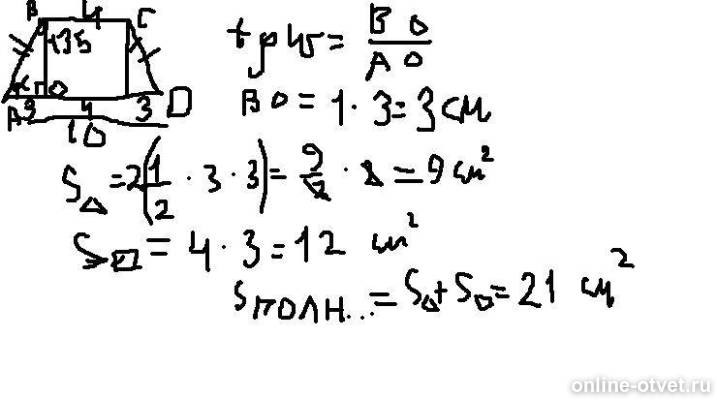 B 4 C
135
O
3 4 3 D
A 10
tg 45 = BO / AO
BO = 1 · 3 = 3 см
S△ = 2(1/2 · 3 · 3) = 9/2 · 2 = 9 см²
S□ = 4 · 3 = 12 см²
Sполн... = S△ + S□ = 21 см²
online-otvet.ru